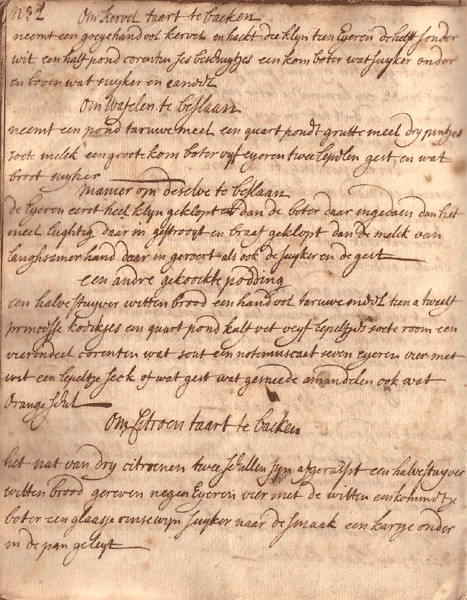 No 2 Om Kervel taert te backen
neemt een goeye handvol kervel en hackt die klyn tien Eyeren de helft sonder
wit een half pond corenten ses beschuytjes een kom boter wat suyker onder
en boven wat suyker en caneel
Om Wafelen te beslaan
neemt een pond taruwe meel een quart pondt grutte meel dry pintjes
soete melck een groote kom boter vyf eyeren twee lepelen gest en wat
broot suyker
manier om deselve te beslaan
de Eyeren eerst heel klyn geklopt dan de boter daar ingedaen dan het
meel lughtig daar in gestrooyt en braaf geklopt dan de melck van
langhsamer hand daar in geroert als ook de suyker en de gest
een andre gekoockte podding
een halve stuyver witten brood een handvol taruwe meel tien a twaelf
princesse koeckjes een quart pond kalf vet vyf lepeltjes soete room een
vierendeel corenten wat sout een notemuscaat seven eyeren vier met
wit een lepeltje seck of wat gest wat gesneede amandelen ook wat
Orange schil
Om Citroen taart te backen
het nat van dry citroenen twee schillen fyn afgeraspt een halve stuyver
witten brood gereven negen Eyeren vier met de witten een kommetje
boter een glaasje rinsewyn suyker naar de smaak een korsje onder
in de pan geleyt